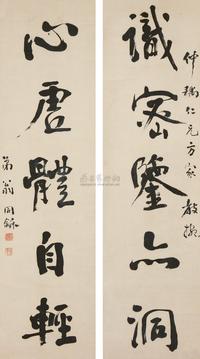 仲璠仁兄方家教擬
識密鑒亦洞
心虛體自輕
弟翁同龢